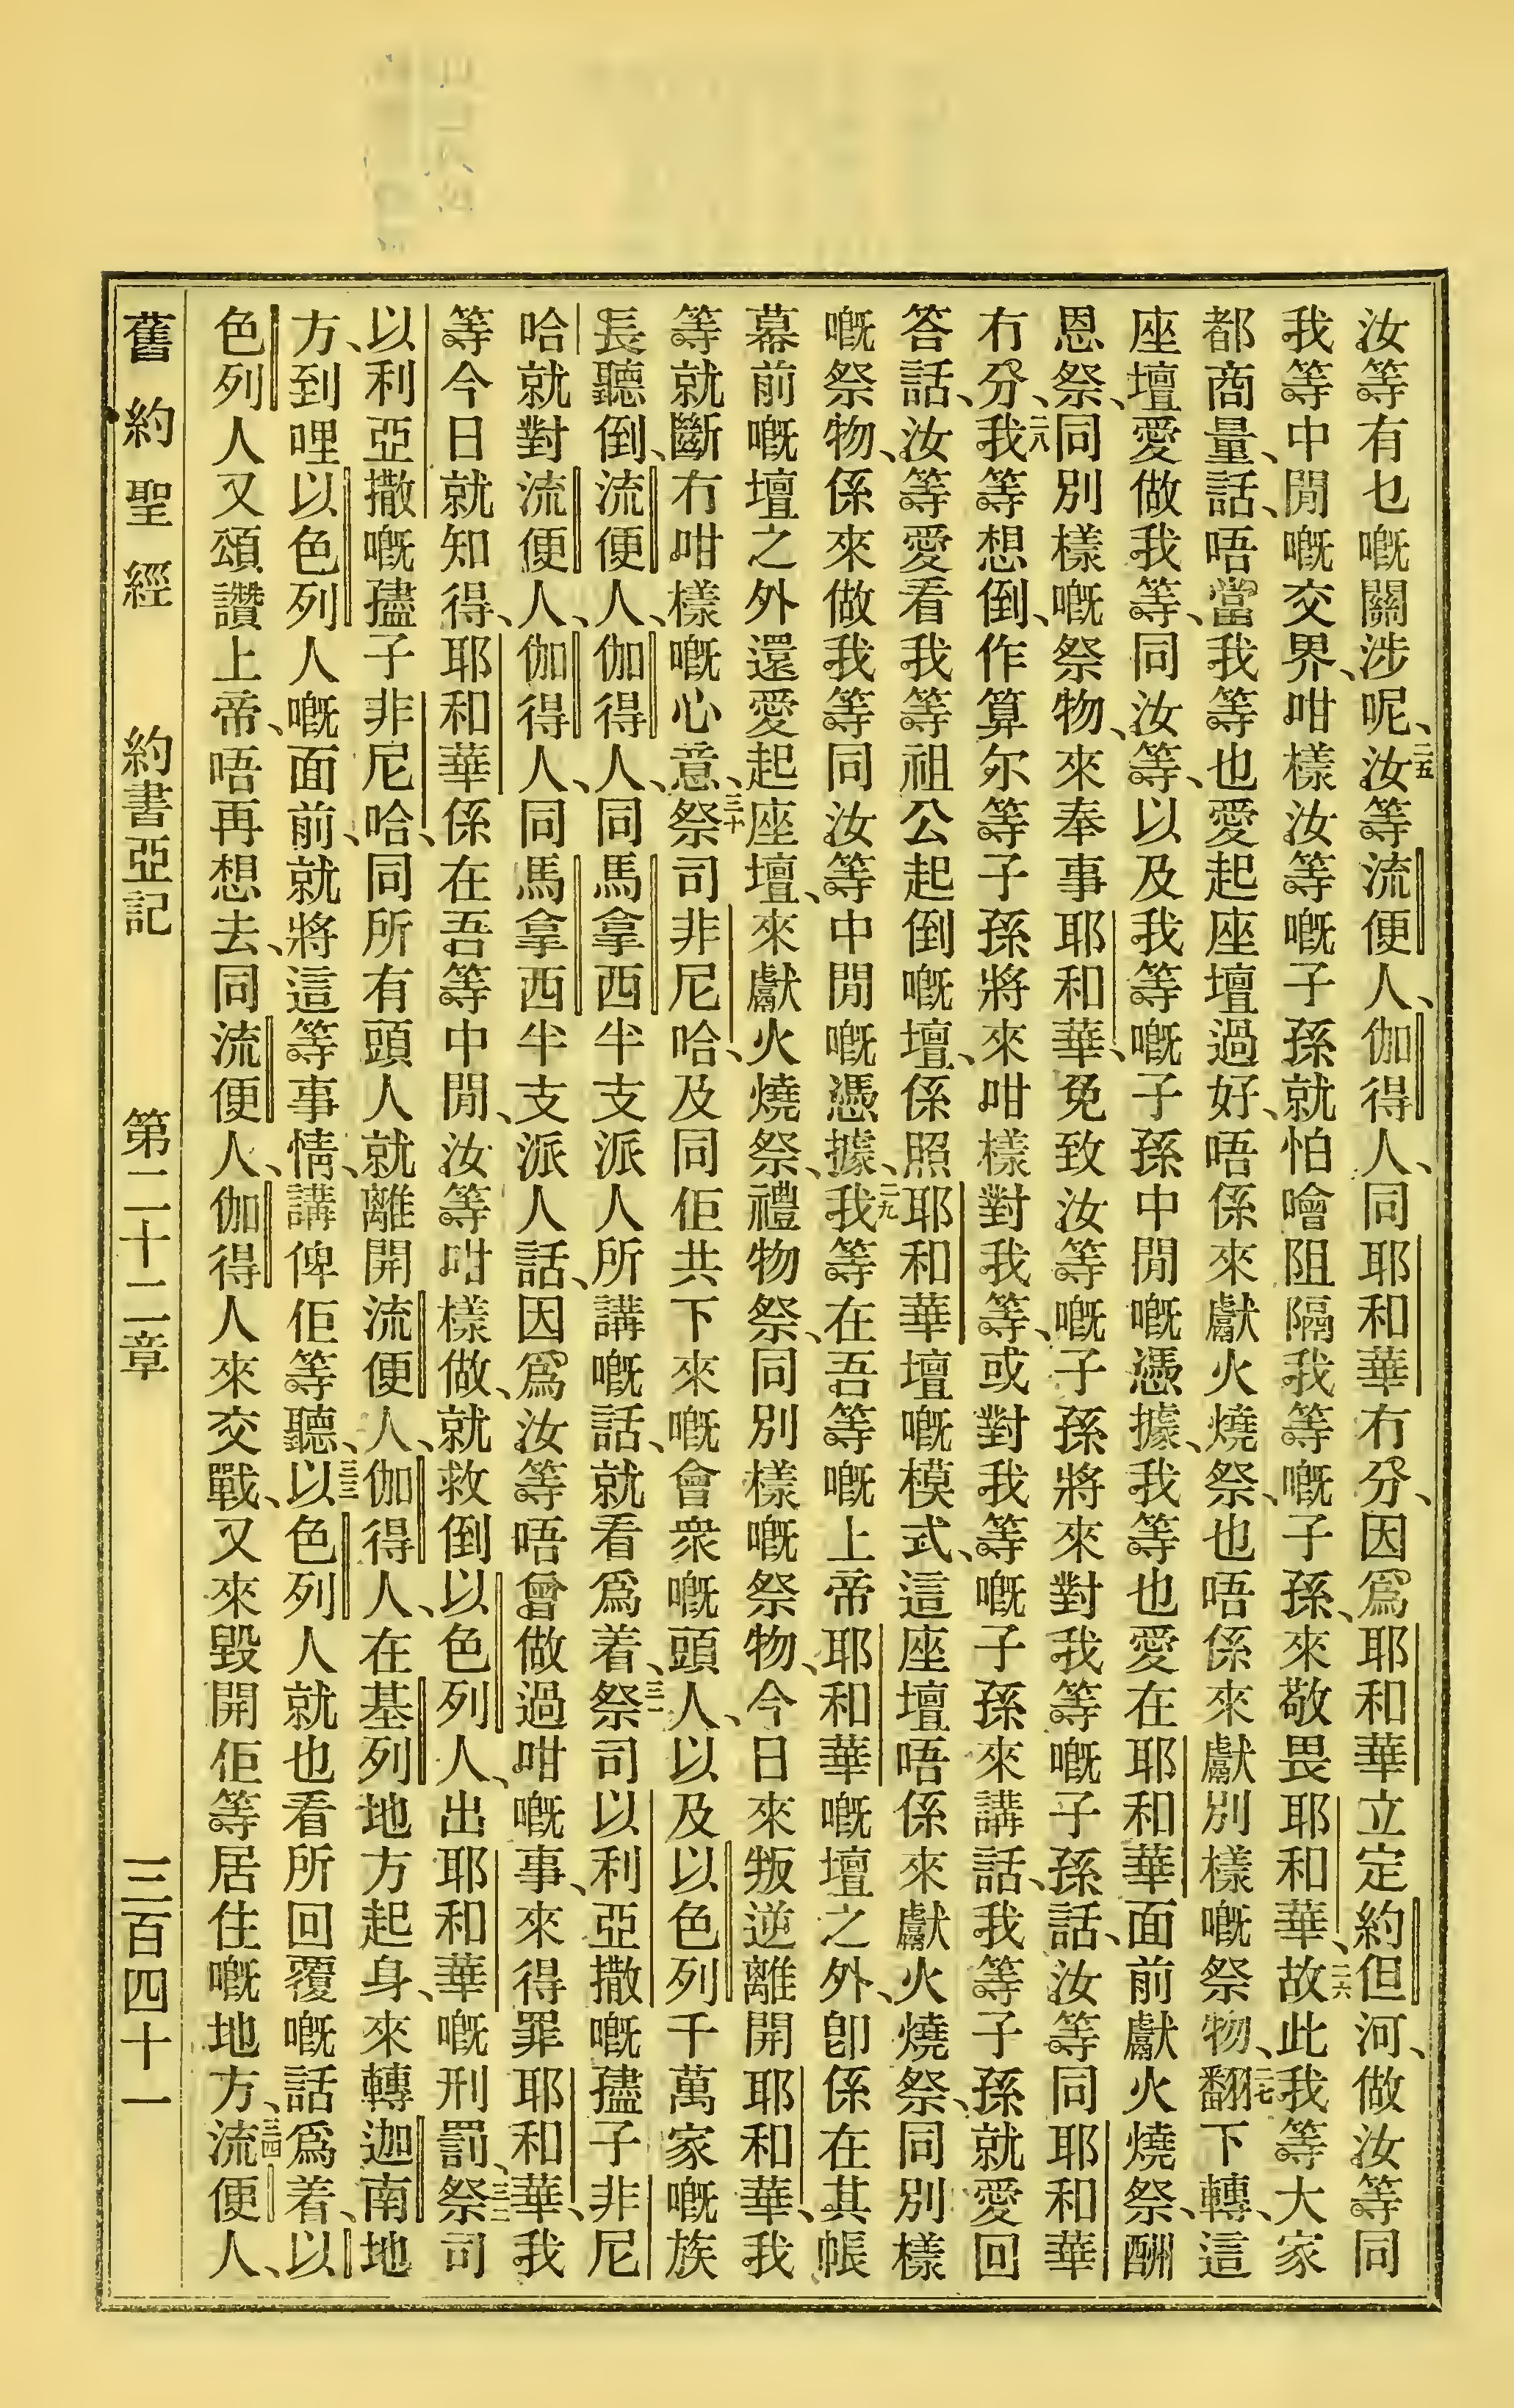 汝等有乜嘅關涉呢、二五汝等流便人、伽得人、同耶和華冇分、因爲耶和華立定約但河、做汝等同
我等中閒嘅交界、咁樣汝等嘅子孫就怕噲阻隔我等嘅子孫、來敬畏耶和華、二六故此我等大家
都商量、話、唔當我等也愛起座壇過好、唔係來獻火燒祭、也唔係來獻別樣嘅祭物、二七翻下轉、這
座壇愛做我等、同汝等、以及我等嘅子孫中閒嘅憑據、我等也愛在耶和華面前獻火燒祭、酬
恩祭、同別樣嘅祭物、來奉事耶和華、免致汝等嘅子孫將來對我等嘅子孫話、汝等同耶和華
冇分、二八我等想倒、作算尔等子孫將來咁樣對我等、或對我等嘅子孫來講話、我等子孫就愛回
答話、汝等愛看我等祖公起倒嘅壇、係照耶和華壇嘅模式、這座壇唔係來獻火燒祭、同別樣
嘅祭物、係來做我等同汝等中閒嘅憑據、二九我等在吾等嘅上帝耶和華嘅壇之外、卽係在其帳
幕前嘅壇之外還愛起座壇、來獻火燒祭、禮物祭、同別樣嘅祭物、今日來叛逆離開耶和華、我
等就斷冇咁樣嘅心意、三十祭司非尼哈、及同佢共下來嘅會衆嘅頭人、以及以色列千萬家嘅族
長聽倒、流便人、伽得人、同馬拿西半支派人所講嘅話、就看爲着、三一祭司以利亞撒嘅孻子非尼
哈就對流便人、伽得人、同馬拿西半支派人話、因爲汝等唔曾做過咁嘅事、來得罪耶和華、我
等今日就知得、耶和華係在吾等中閒、汝等咁樣做、就救倒以色列人、出耶和華嘅刑罰、三二祭司
以利亞撒嘅孻子非尼哈、同所有頭人就離開流便人、伽得人、在基列地方起身、來轉迦南地
方、到哩以色列人嘅面前、就將這等事情、講俾佢等聽、三三以色列人就也看所回覆嘅話爲着、以
色列人又頌讚上帝、唔再想去、同流便人、伽得人來交戰、又來毀開佢等居住嘅地方、三四流便人、
舊約聖經　約書亞記　第二十二章　三百四十一